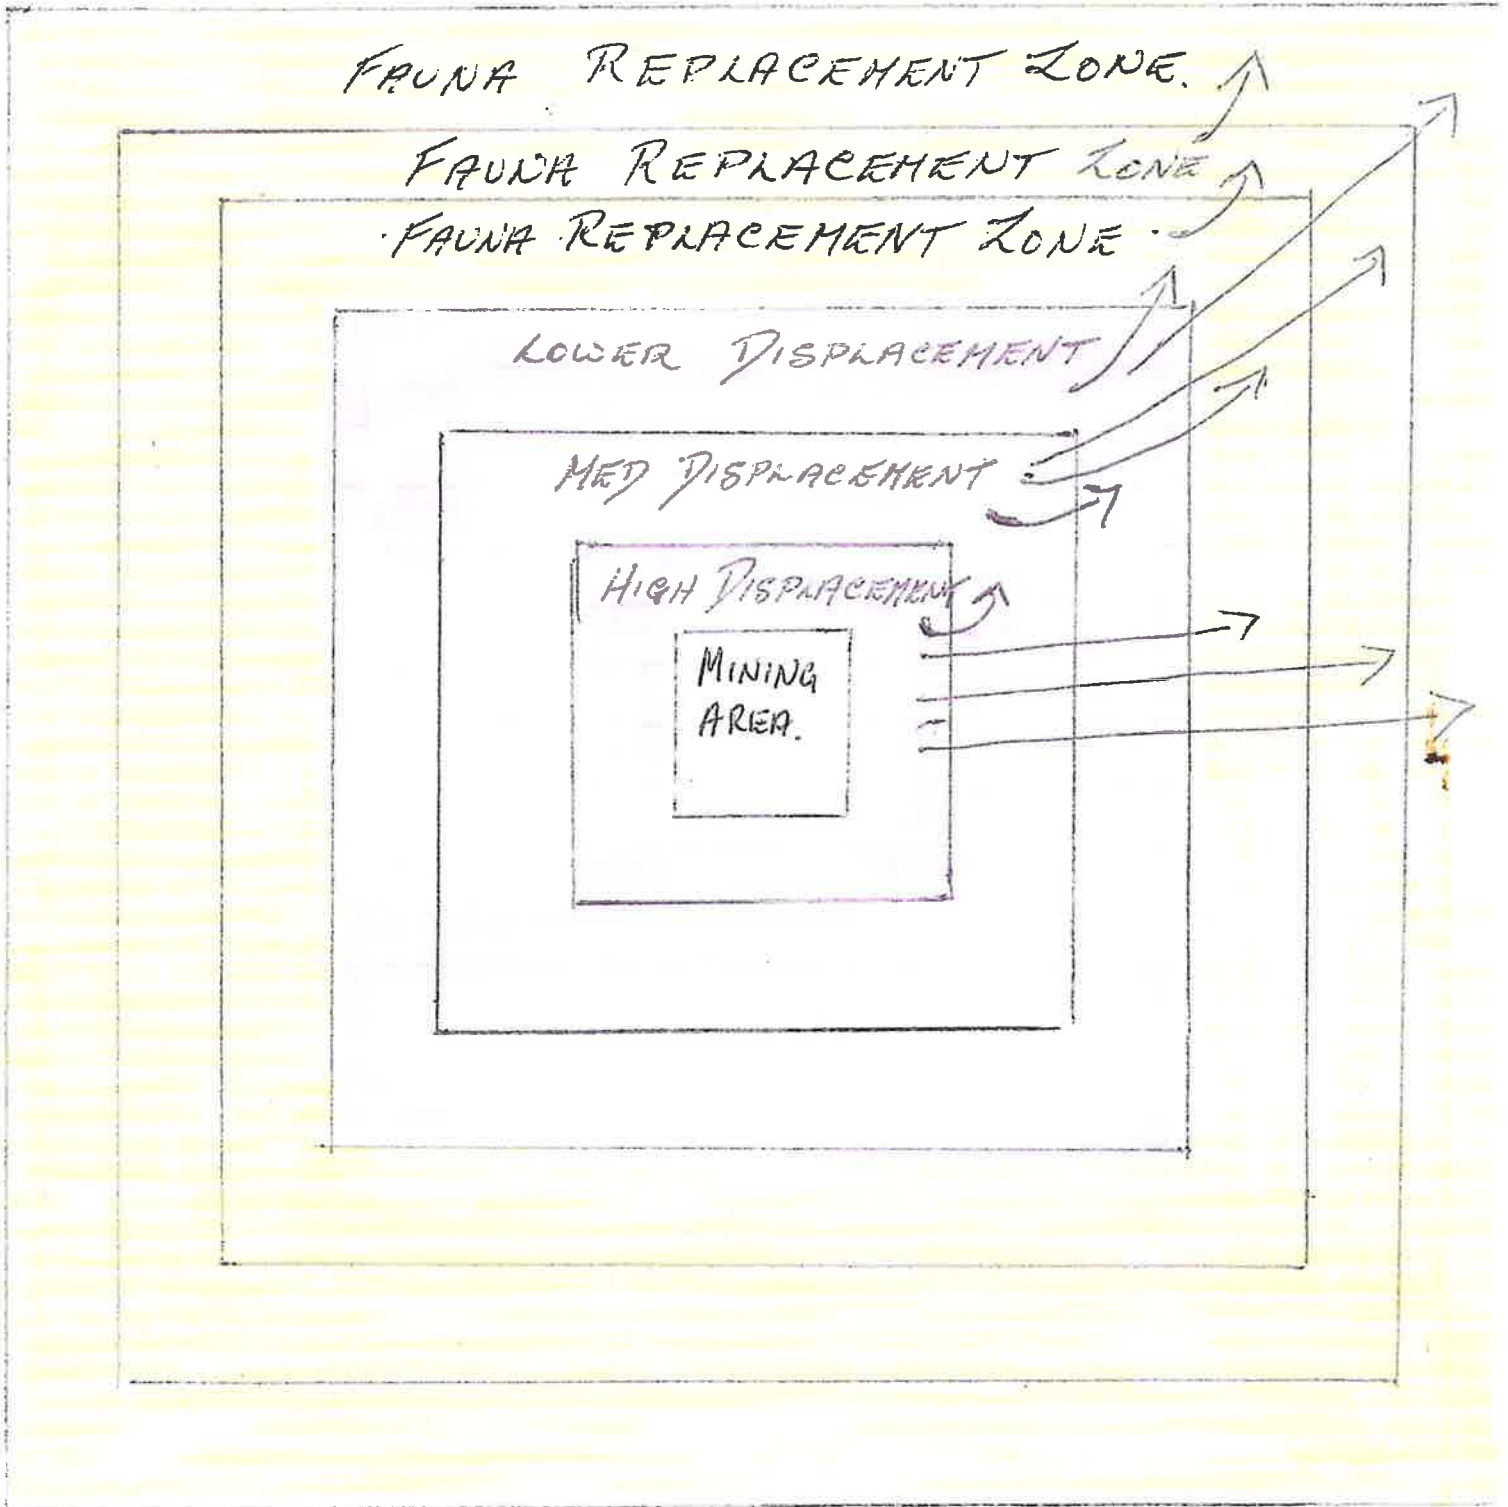 FAUNA REPLACEMENT ZONE.
FAUNA REPLACEMENT ZONE
FAUNA REPLACEMENT ZONE
LOWER DISPLACEMENT
MED DISPLACEMENT
HIGH DISPLACEMENT
MINING
AREA.